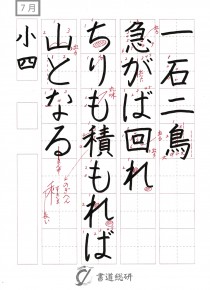 7月
一石二鳥
急がば回れ
ちりも積もれば
山となる
小四
書道総研